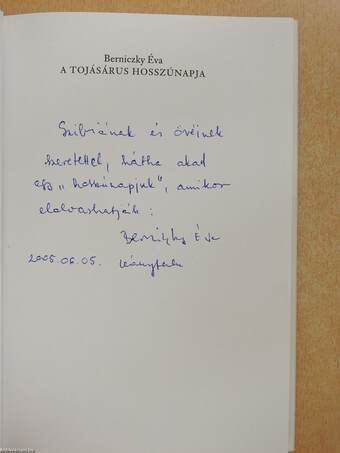 Berniczky Éva
A TOJÁSÁRUS HOSSZÚNAPJA
Szilviának és övéinek
szeretettel, hátha akad
egy „hosszúnapjuk", amikor
elolvashatják:
Berniczky Éva
2005.06.05.